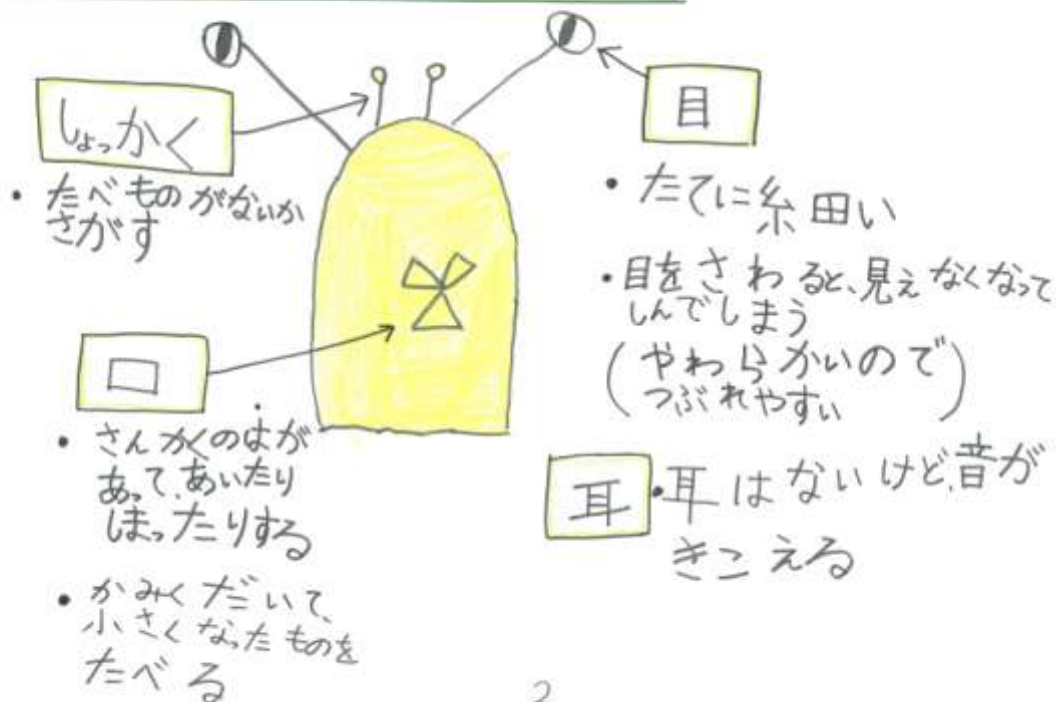 しょっかく
・たべものがないか
さがす
口
・さんかくのはが
あって、あいたり
しまったりする
・かみくだいて、
小さくなったものを
たべる
目
・たてに細い
・目をさわると、見えなくなって
しんでしまう
(やわらかいので
つぶれやすい)
耳
・耳はないけど、音が
きこえる
2